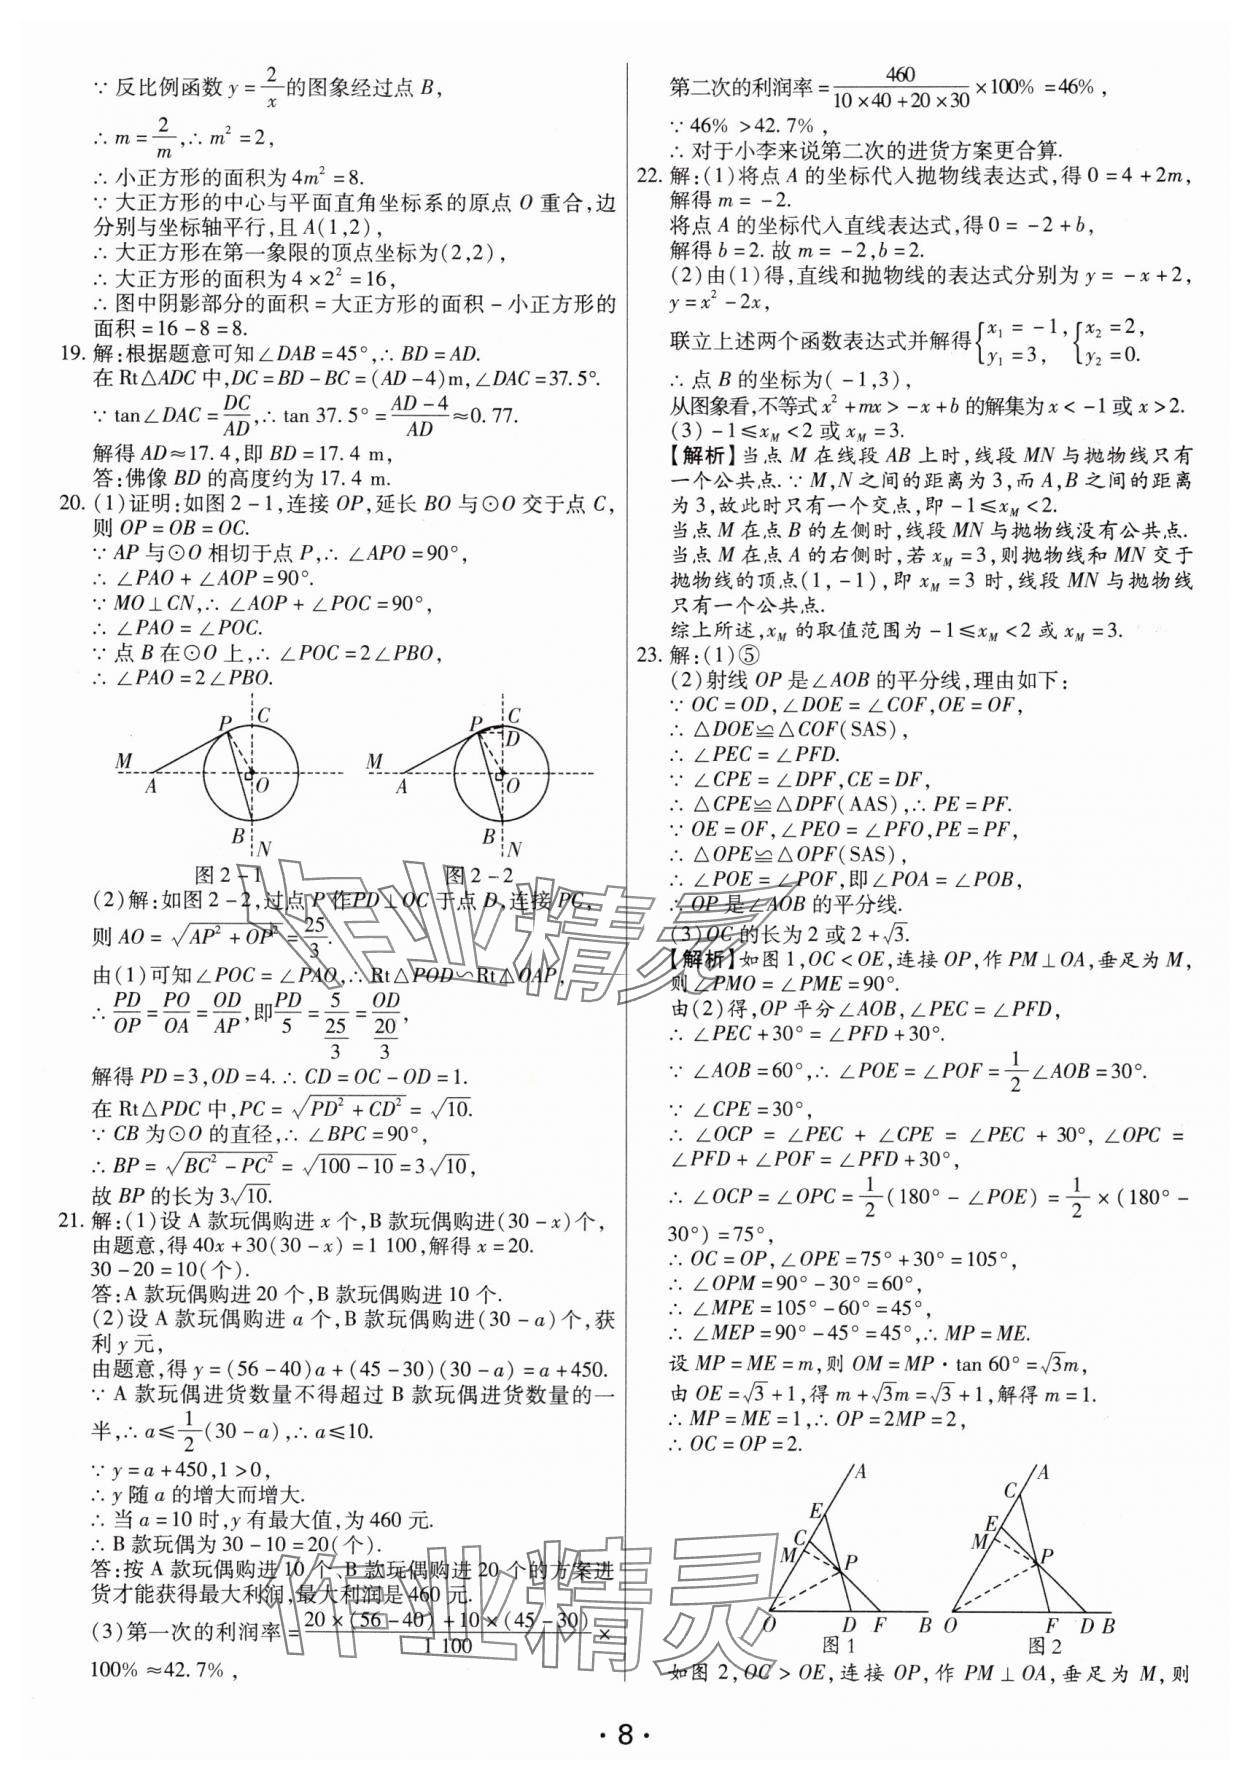 ∵ 反比例函数 y = 2/x 的图象经过点 B,
∴ m = 2/m, ∴ m² = 2,
∴ 小正方形的面积为 4m² = 8.
∵ 大正方形的中心与平面直角坐标系的原点 O 重合,边
分别与坐标轴平行,且 A(1,2),
∴ 大正方形在第一象限的顶点坐标为(2,2),
∴ 大正方形的面积为 4×2² = 16,
∴ 图中阴影部分的面积 = 大正方形的面积 - 小正方形的
面积 = 16 - 8 = 8.
19. 解:根据题意可知∠DAB = 45°, ∴ BD = AD.
在 Rt△ADC 中, DC = BD - BC = (AD - 4)m, ∠DAC = 37.5°.
∵ tan∠DAC = DC/AD, ∴ tan 37.5° = (AD - 4)/AD ≈ 0.77.
解得 AD ≈ 17.4, 即 BD = 17.4 m,
答:佛像 BD 的高度约为 17.4 m.
20. (1)证明:如图 2-1,连接 OP,延长 BO 与⊙O 交于点 C,
则 OP = OB = OC.
∵ AP 与⊙O 相切于点 P, ∴ ∠APO = 90°,
∴ ∠PAO + ∠AOP = 90°.
∵ MO⊥CN, ∴ ∠AOP + ∠POC = 90°,
∴ ∠PAO = ∠POC.
∵ 点 B 在⊙O 上, ∴ ∠POC = 2∠PBO,
∴ ∠PAO = 2∠PBO.
P C M A O B N
P C D M A O B N
图 2-1 图 2-2
(2)解:如图 2-2,过点 P 作 PD⊥OC 于点 D,连接 PC,
则 AO = √(AP² + OP²) = 25/3.
由(1)可知∠POC = ∠PAO, ∴ Rt△POD∽Rt△OAP,
∴ PD/OP = PO/OA = OD/AP, 即 PD/5 = 5/(25/3) = OD/(20/3),
解得 PD = 3, OD = 4. ∴ CD = OC - OD = 1.
在 Rt△PDC 中, PC = √(PD² + CD²) = √10.
∵ CB 为⊙O 的直径, ∴ ∠BPC = 90°,
∴ BP = √(BC² - PC²) = √(100 - 10) = 3√10,
故 BP 的长为 3√10.
21. 解:(1)设 A 款玩偶购进 x 个,B 款玩偶购进(30 - x)个,
由题意,得 40x + 30(30 - x) = 1 100,解得 x = 20.
30 - 20 = 10(个).
答:A 款玩偶购进 20 个,B 款玩偶购进 10 个.
(2)设 A 款玩偶购进 a 个,B 款玩偶购进(30 - a)个,获
利 y 元,
由题意,得 y = (56 - 40)a + (45 - 30)(30 - a) = a + 450.
∵ A 款玩偶进货数量不得超过 B 款玩偶进货数量的一
半, ∴ a ≤ 1/2(30 - a), ∴ a ≤ 10.
∵ y = a + 450, 1 > 0,
∴ y 随 a 的增大而增大.
∴ 当 a = 10 时,y 有最大值,为 460 元.
∴ B 款玩偶为 30 - 10 = 20(个).
答:按 A 款玩偶购进 10 个、B 款玩偶购进 20 个的方案进
货才能获得最大利润,最大利润是 460 元.
(3)第一次的利润率 = (20×(56 - 40) + 10×(45 - 30))/1 100 ×
100% ≈ 42.7%,
第二次的利润率 = 460/(10×40 + 20×30) × 100% = 46%,
∵ 46% > 42.7%,
∴ 对于小李来说第二次的进货方案更合算.
22. 解:(1)将点 A 的坐标代入抛物线表达式,得 0 = 4 + 2m,
解得 m = -2.
将点 A 的坐标代入直线表达式,得 0 = -2 + b,
解得 b = 2. 故 m = -2, b = 2.
(2)由(1)得,直线和抛物线的表达式分别为 y = -x + 2,
y = x² - 2x,
联立上述两个函数表达式并解得{x₁ = -1, y₁ = 3, {x₂ = 2, y₂ = 0.
∴ 点 B 的坐标为(-1,3),
从图象看,不等式 x² + mx > -x + b 的解集为 x < -1 或 x > 2.
(3) -1 ≤ x_M < 2 或 x_M = 3.
【解析】当点 M 在线段 AB 上时,线段 MN 与抛物线只有
一个公共点. ∵ M,N 之间的距离为 3,而 A,B 之间的距离
为 3,故此时只有一个交点,即 -1 ≤ x_M < 2.
当点 M 在点 B 的左侧时,线段 MN 与抛物线没有公共点.
当点 M 在点 A 的右侧时,若 x_M = 3,则抛物线和 MN 交于
抛物线的顶点(1, -1),即 x_M = 3 时,线段 MN 与抛物线
只有一个公共点.
综上所述,x_M 的取值范围为 -1 ≤ x_M < 2 或 x_M = 3.
23. 解:(1)⑤
(2)射线 OP 是∠AOB 的平分线,理由如下:
∵ OC = OD, ∠DOE = ∠COF, OE = OF,
∴ △DOE≌△COF(SAS),
∴ ∠PEC = ∠PFD.
∵ ∠CPE = ∠DPF, CE = DF,
∴ △CPE≌△DPF(AAS), ∴ PE = PF.
∵ OE = OF, ∠PEO = ∠PFO, PE = PF,
∴ △OPE≌△OPF(SAS),
∴ ∠POE = ∠POF, 即∠POA = ∠POB,
∴ OP 是∠AOB 的平分线.
(3)OC 的长为 2 或 2 + √3.
【解析】如图 1, OC < OE,连接 OP,作 PM⊥OA,垂足为 M,
则∠PMO = ∠PME = 90°.
由(2)得,OP 平分∠AOB, ∠PEC = ∠PFD,
∴ ∠PEC + 30° = ∠PFD + 30°.
∵ ∠AOB = 60°, ∴ ∠POE = ∠POF = 1/2∠AOB = 30°.
∵ ∠CPE = 30°,
∴ ∠OCP = ∠PEC + ∠CPE = ∠PEC + 30°, ∠OPC =
∠PFD + ∠POF = ∠PFD + 30°,
∴ ∠OCP = ∠OPC = 1/2(180° - ∠POE) = 1/2 × (180° -
30°) = 75°,
∴ OC = OP, ∠OPE = 75° + 30° = 105°,
∴ ∠OPM = 90° - 30° = 60°,
∴ ∠MPE = 105° - 60° = 45°,
∴ ∠MEP = 90° - 45° = 45°, ∴ MP = ME.
设 MP = ME = m,则 OM = MP·tan 60° = √3m,
由 OE = √3 + 1,得 m + √3m = √3 + 1,解得 m = 1.
∴ MP = ME = 1, ∴ OP = 2MP = 2,
∴ OC = OP = 2.
A E C M P O D F B
A C E M P O F D B
图 1 图 2
如图 2, OC > OE,连接 OP,作 PM⊥OA,垂足为 M,则
作业精灵
作业精灵
· 8 ·